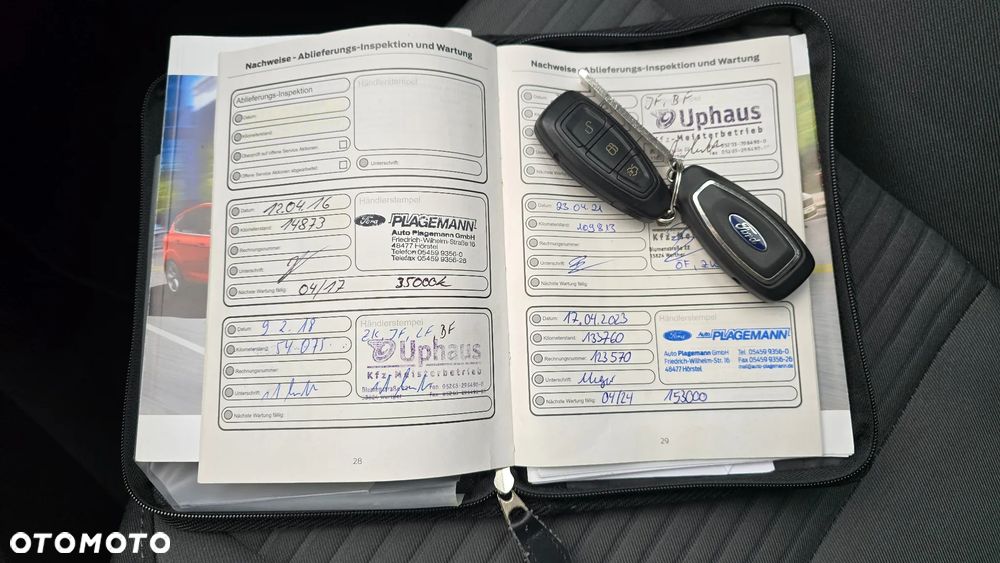 Nachweise - Ablieferungs-Inspektion und Wartung
Ablieferungs-Inspektion
Händlerstempel
Datum:
Kilometerstand:
Überprüft auf offene Service Aktionen:
Offene Service Aktionen abgearbeitet:
Unterschrift:
Datum: 12.04.16
Kilometerstand: 14873
Rechnungsnummer:
Unterschrift:
Nächste Wartung fällig: 04/17 35000
Ford PLAGEMANN
Auto Plagemann GmbH
Friedrich-Wilhelm-Straße 16
48477 Hörstel
Telefon 05459 9356-0
Telefax 05459 9356-28
Datum: 9 2. 18
Kilometerstand: 54 075
Rechnungsnummer:
Unterschrift:
Nächste Wartung fällig:
Händlerstempel
ZK, IF, LF, BF
Uphaus
Kfz-Meisterbetrieb
28
Nachweise - Ablieferungs-Inspektion und Wartung
IF, BF
Uphaus
Kfz-Meisterbetrieb
Datum: 23.04.21
Kilometerstand: 109813
Rechnungsnummer:
Unterschrift:
Nächste Wartung fällig:
Datum: 17.04.2023
Kilometerstand: 133760
Rechnungsnummer: 123570
Unterschrift:
Nächste Wartung fällig: 04/24 153000
Händlerstempel
Ford Auto PLAGEMANN
Auto Plagemann GmbH Tel. 05459 9356-0
Friedrich-Wilhelm-Str. 16 Fax 05459 9356-28
48477 Hörstel mail@auto-plagemann.de
29
Ford
OTOMOTO